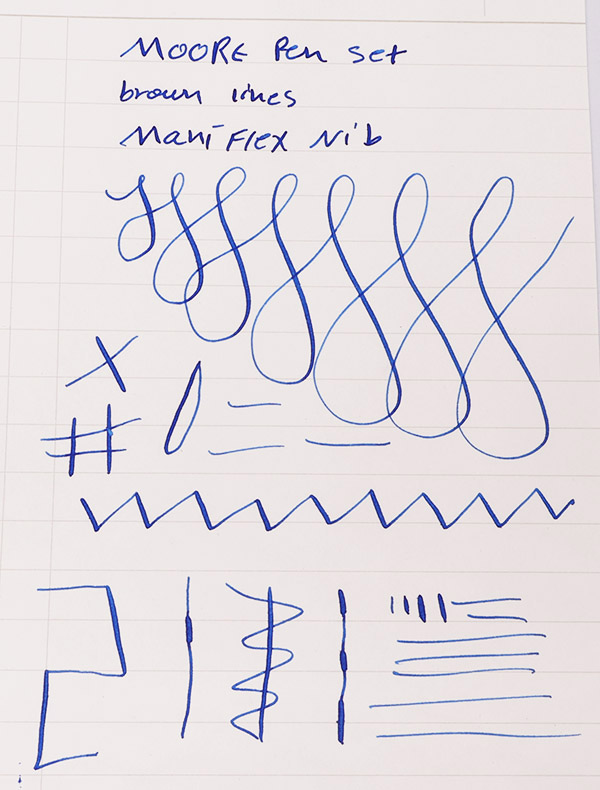 MOORE Pen set
brown lines
Maniflex Nib